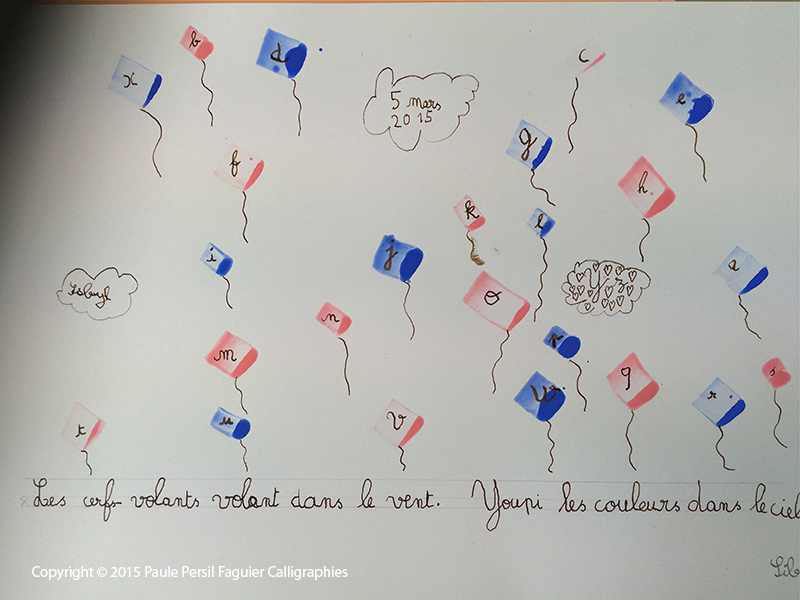 x
b
d
c
e
5 mars
2015
g
f
h
k
l
i
j
a
y z
o
n
m
q
s
w
r
t
u
v
Les cerfs-volants volant dans le vent. Youpi les couleurs dans le ciel
Lib
Copyright © 2015 Paule Persil Faguier Calligraphies